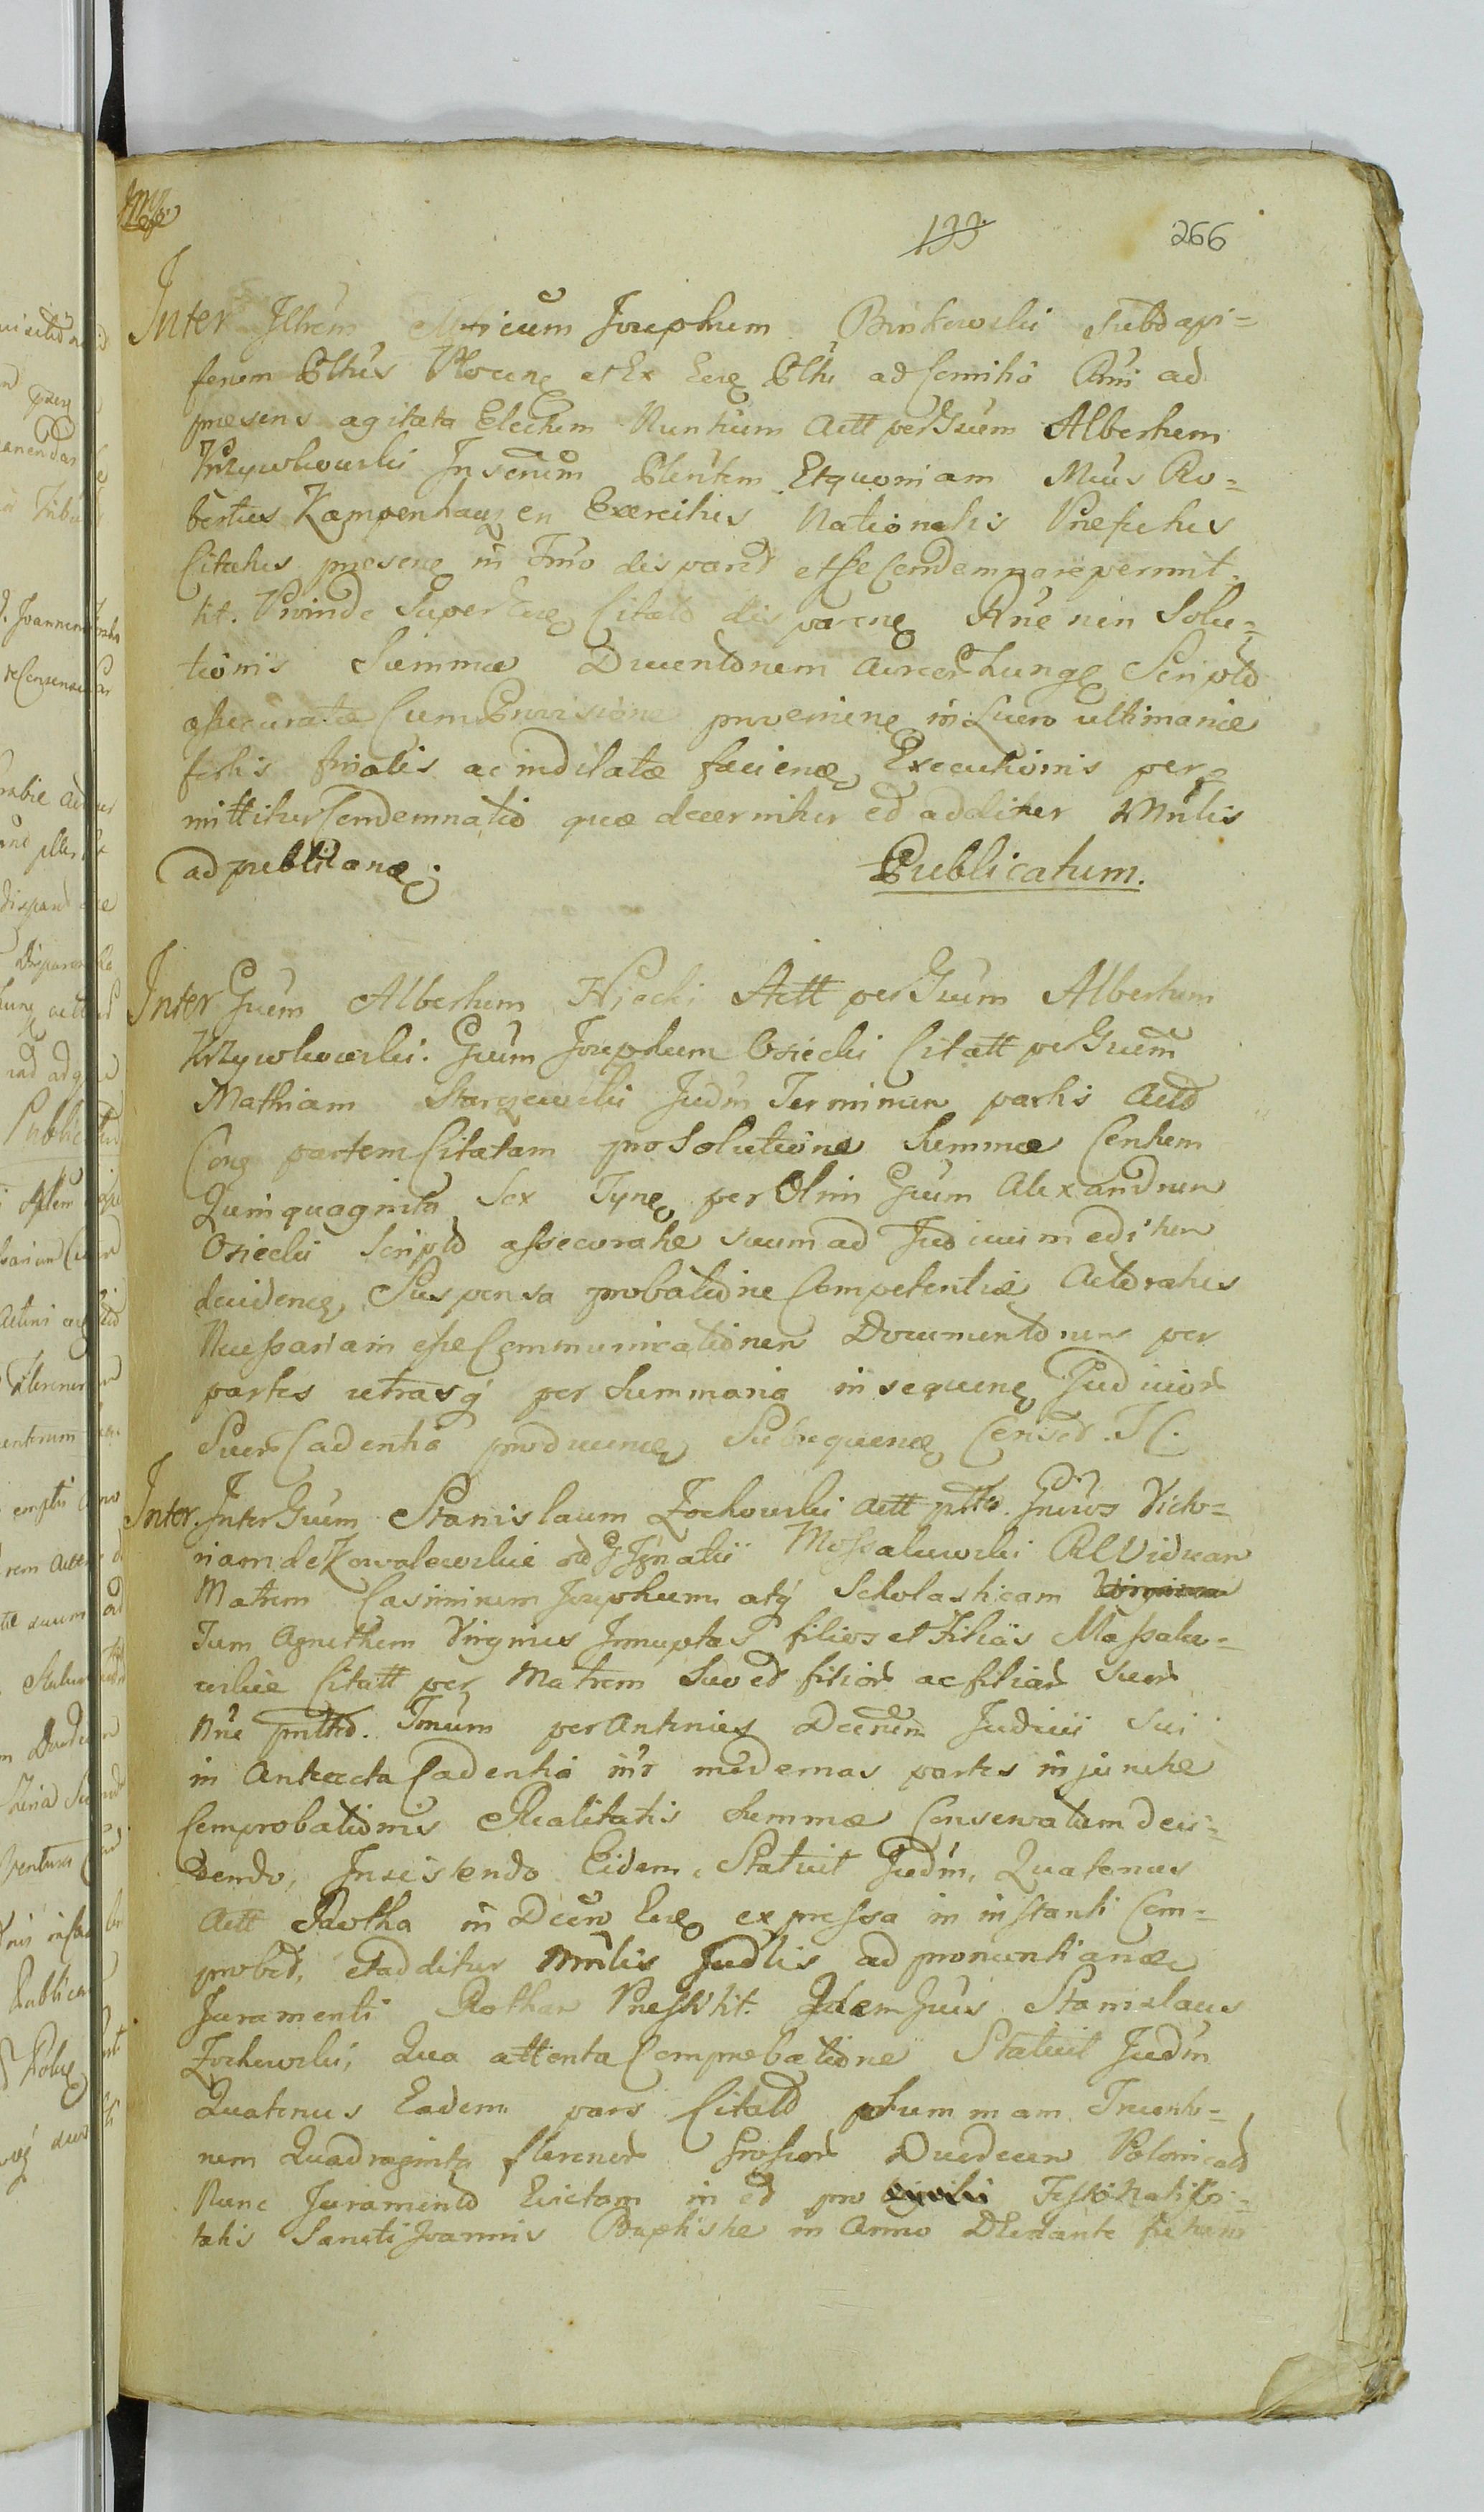 133 266
Inter Illrem Josephum Binkowski Subdapi=
ferum Pltus Plocen et Ex Eue Pltu ad Comitia Rni ad
praesens agitata Electum Nuntium Actt per Gnum Albertum
Krzywkowski Plentem Etquoniam Mcus Ro=
bertus Kampenhauzen Exercitus Nationalis Praefectus
Citatus praesene in Tmo disparet et se Condemnare permit
tit. Proinde Super Citato disparene Rne non Solu=
tionis Summae Ducentorum Aureor Hung Scripto
assecuratae Cum Provisione proveniene in Lucro ultimariae
finalis ac indilatae faciene Executionis per
mittitur Condemnatio quae decernitur et additur Mnlis
ad publicanae. Publicatum.
Inter Gnum Albertum Actt per Gnum Albertum
Krzywkowski. Gnum Josephum Osiecki Citatt per Gnum
Mathiam Starzewski Judm Terminum partis Acto
Con partem Citatam pro Solutione Summae Centum
Quinquaginta Sex Tyn per Olim Gnum Alexandrum
Osiecki Scripto assecuratae suum ad Judicium editum
decidene, Suspensa probatione Competentiae Actoratus
Necessariam esse Communicationem Documentorum per
partes utrasq per Summaria in sequene Judicior
Suor Cadentia producene Subsequene Censet. IC.
Inter. Inter Gnum Stanislaum Zochowski Actt Gnros Victo=
riam de Kowalewskie Ignatii Mossakowski Relviduam
Matrem Casimirum Josephum atq Scholasticam
Tum Agnethem Virgines Innuptas filios et Filias Massako=
wskie Citatt per Matrem Suo et filior ac filiar Suor
Nne Tmum per Anterius Decrum Judicii Sui
in Anteacta Cadentia intr modernas partes injunctae
Comprobationis Realitatis Summae Conservatum deci=
dendo, Insistendo Eidem, Statuit Judm, Quatenus
Actt Rotha in Decro Eue expressa in instanti Com=
probet, et additur Mnlis Judlis ad pronuntianae
Juramenti Rotham Praestitit. Idem Gnus Stanislaus
Zochowski, Qua attenta Comprobatione Statuit Judm
Quatenus Eadem pars Citato Summam Trecento=
rum Quadraginta florenor Grossor Duodecem Polonicalo
Nunc Juramento Evictam in et pro Festo Natiti=
tatis Sancti Joannis Baptistae in Anno Dlenante futuro